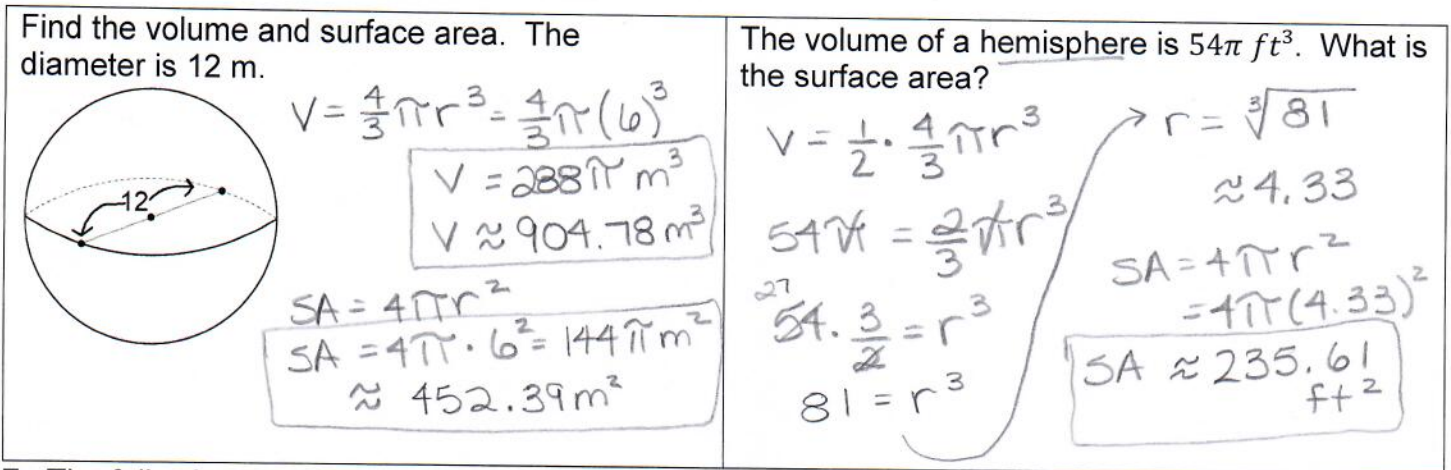 Find the volume and surface area. The
diameter is 12 m.
12
V = 4/3 πr³ = 4/3 π(6)³
V = 288π m³
V ≈ 904.78 m³
SA = 4πr²
SA = 4π · 6² = 144π m²
≈ 452.39 m²
The volume of a hemisphere is 54π ft³. What is
the surface area?
V = 1/2 · 4/3 πr³
54π = 2/3 πr³
27
54 · 3/2 = r³
81 = r³
r = ∛81
≈ 4.33
SA = 4πr²
= 4π(4.33)²
SA ≈ 235.61
ft²